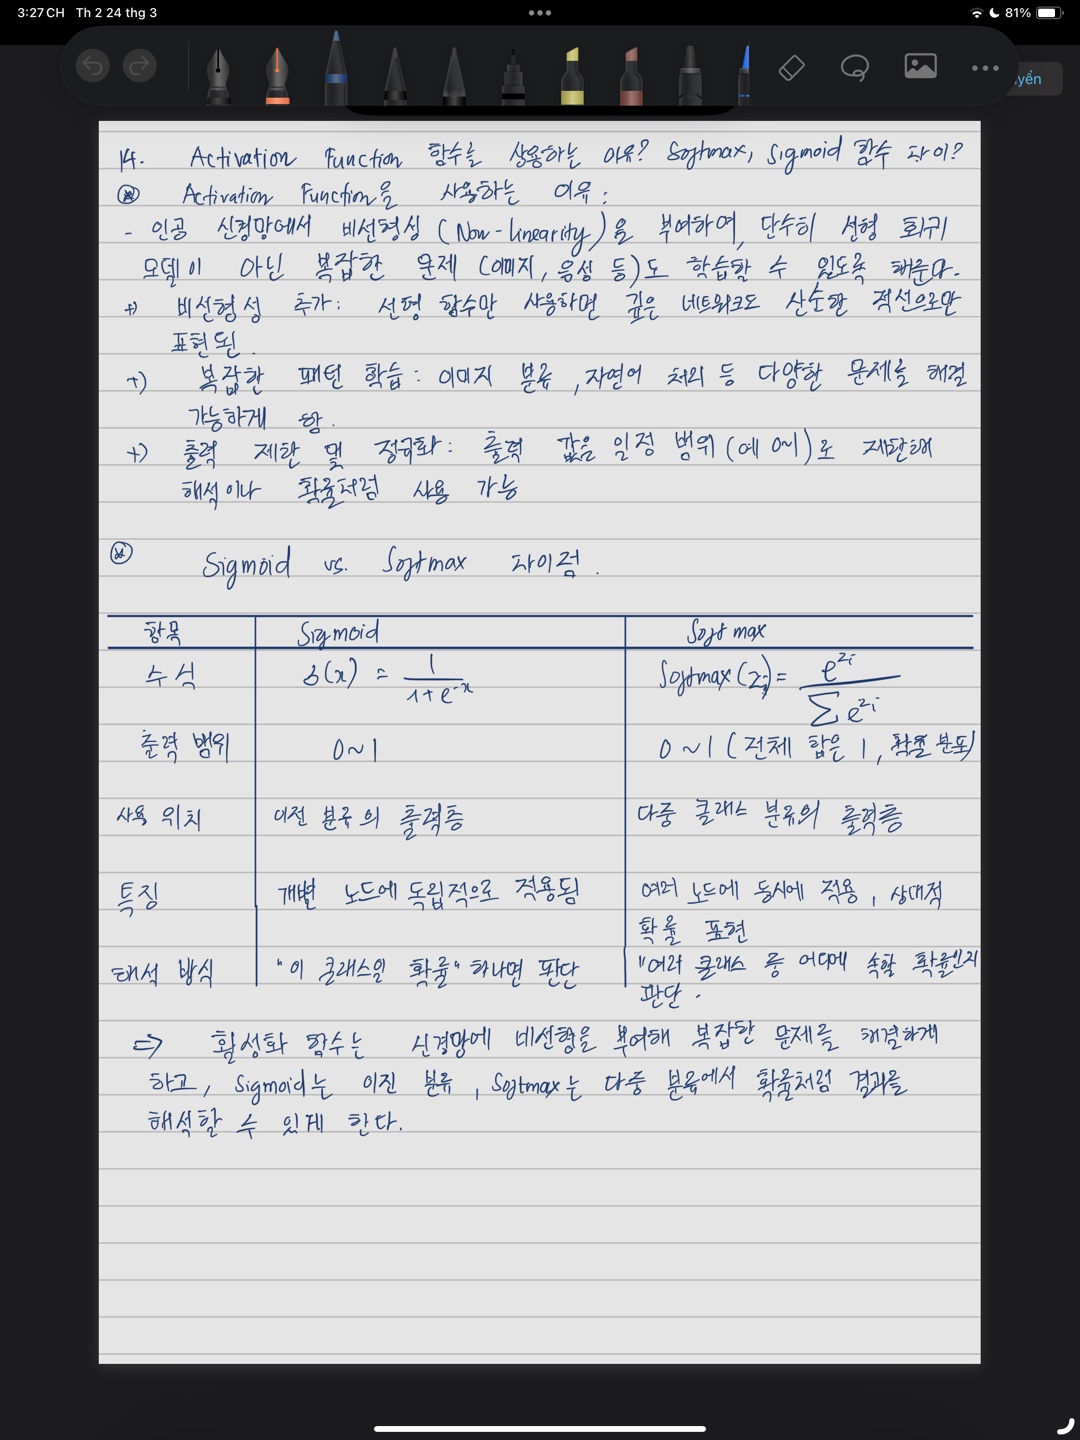 3:27 CH Th 2 24 thg 3
81%
yển
14. Activation Function 함수를 사용하는 이유? Softmax, Sigmoid 함수 차이?
Activation Function을 사용하는 이유:
- 인공 신경망에서 비선형성 (Non-linearity)을 부여하여, 단순히 선형 회귀
모델이 아닌 복잡한 문제 (이미지, 음성 등)도 학습할 수 있도록 해준다.
+) 비선형성 추가: 선형 함수만 사용하면 깊은 네트워크도 단순한 직선으로만
표현됨.
+) 복잡한 패턴 학습: 이미지 분류, 자연어 처리 등 다양한 문제를 해결
가능하게 함.
+) 출력 제한 및 정규화: 출력 값을 일정 범위 (예 0~1)로 제한해
해석이나 확률처럼 사용 가능
Sigmoid vs. Softmax 차이점.
항목 Sigmoid Softmax
수식 σ(x) = 1 / (1+e^-x) Softmax(zi) = e^zi / ∑ e^zi
출력 범위 0~1 0~1 (전체 합은 1, 확률 분포)
사용 위치 이진 분류의 출력층 다중 클래스 분류의 출력층
특징 개별 노드에 독립적으로 적용됨 여러 노드에 동시에 적용, 상대적
확률 표현
해석 방식 "이 클래스일 확률" 하나만 판단 "여러 클래스 중 어디에 속할 확률인지
판단.
⇒ 활성화 함수는 신경망에 비선형을 부여해 복잡한 문제를 해결하게
하고, Sigmoid는 이진 분류, Softmax는 다중 분류에서 확률처럼 결과를
해석할 수 있게 한다.